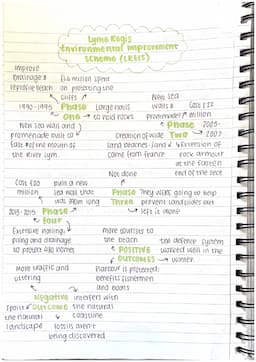 Lyme Regis
Environmental Improvement
Scheme (LREIS)
improve
Drainage &
replenish beach
£1.6 million spent
on protecting the
cliffs
1990-1995
Phase
One
Large nails
to hold rocks
New sea wall and
promenade built to
East of the mouth of
the River Lym.
New sea
walls &
Promenade
Cost £22
million
Phase
Two
2005-
2007
Creation of wide
sand beaches - sand
came from France
Extension of
rock armour
at the Eastern
end of the
Not done
Phase
Three
They were going to help
prevent landslides but
left it alone
Cost £20
million
Built a new
sea wall that
was 390m long
2013-2015
Phase
Four
Extensive nailing,
piling and drainage
to protect 480 homes
more tourists to
the beach
the defence system
worked well in the
winter
Positive
Outcomes
harbour is protected:
benefits fishermen
and boats
More traffic and
littering
Negative
Outcome
Spoilt
the natural
landscape
interfere with
the natural
coastline
fossils aren't
being discovered